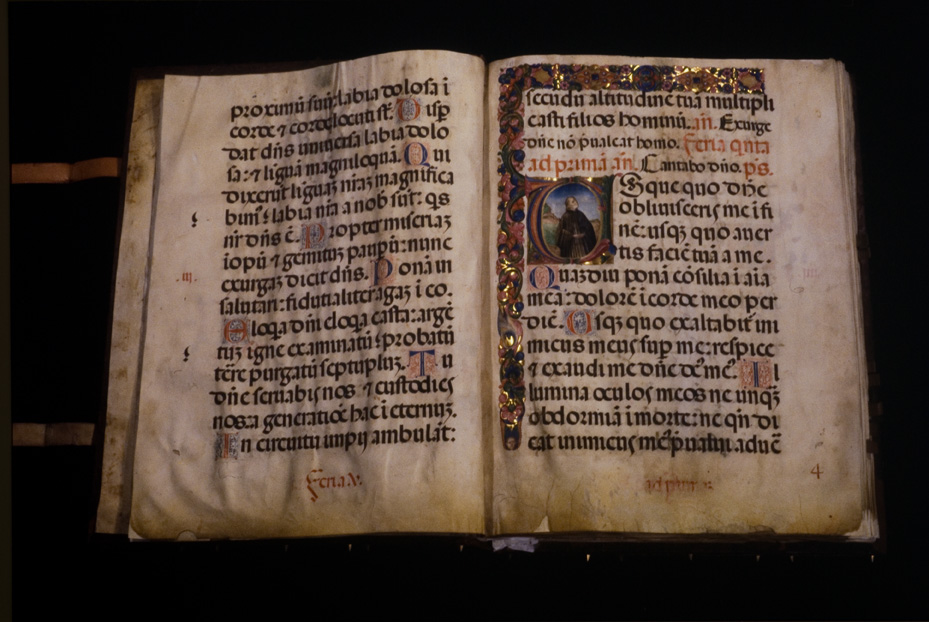 proximū suū: labia dolosa ī
corde ⁊ corde locuti sūt. Disp
dat dn̄s uniuersa labia dolo
sa: ⁊ liguā magniloquā. Qui
dixerūt liguaȝ nr̄aȝ magnifica
bim⁹: labia nr̄a a nob̄ sūt: qs
nr̄ dn̄s ē. Propter miseriaȝ
iopū ⁊ gemituȝ paupū: nunc
exurgaȝ dicit dn̄s. Ponā in
.III.
salutari: fidutialiter agaȝ i eo.
Eloqa dn̄i eloqa casta: argē
tuȝ igne examinatū: probatū
tēre purgatū septupluȝ. Tu
dn̄e seruabis nos ⁊ custodies
nos: a generatiōe hac i eternuȝ.
In circuitu impij ambulāt:
Feria .V.
secūdū altitudinē tuā multipli
casti filios hominū. añ. Exurge
dn̄e nō pualeat homo. Feria qnta
ad primā añ. Cantabo dn̄o. ps.
Usque quo dn̄e
obliuisceris me i fi
nē: usqȝ quo auer
tis faciē tuā a me.
Quaȝdiu ponā cōsilia i aīa
mea: dolorē i corde meo per
diē. Usqȝ quo exaltabit̄ ini
micus meus sup me: respice
⁊ exaudi me dn̄e de⁹ me⁹. Il
lumina oculos meos ne unqȝ
obdormiā i morte: ne qn̄ di
cat inimicus me⁹ pualui aduē
ad primā
4